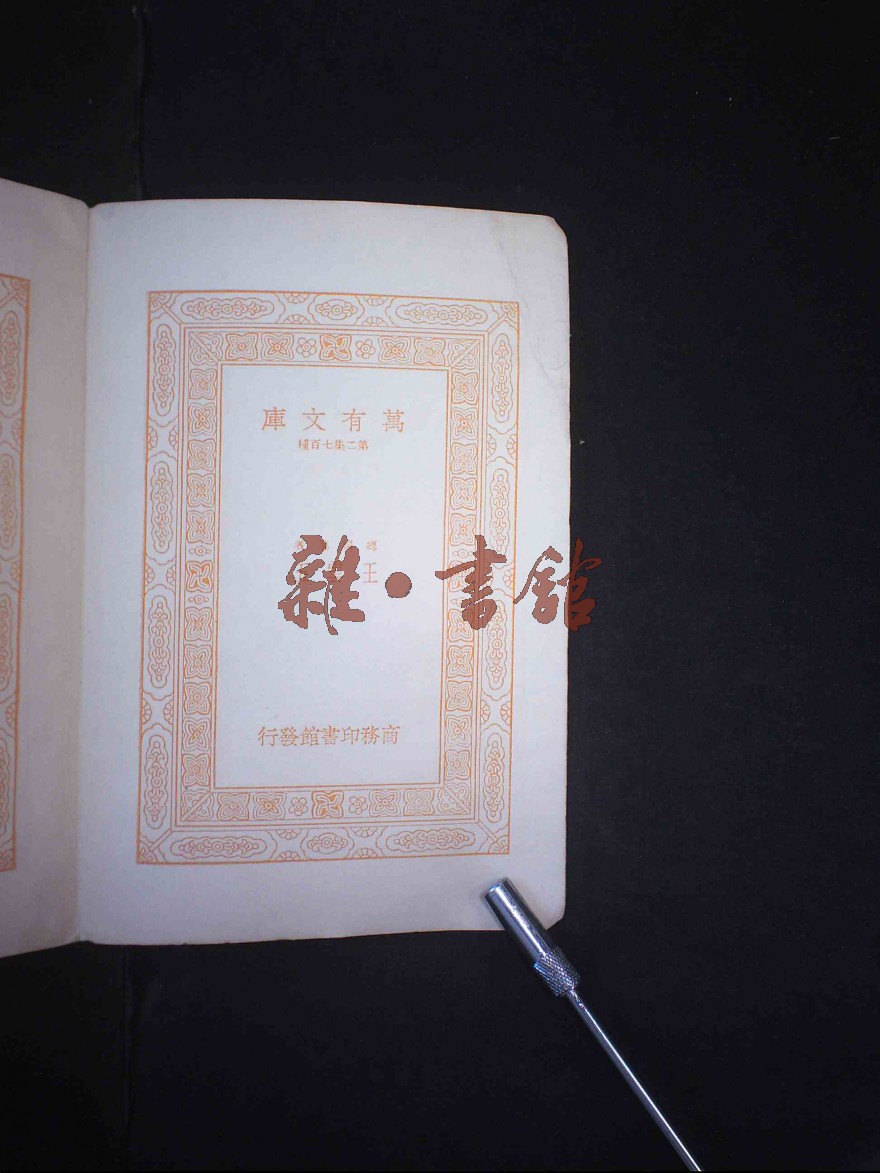 萬有文庫
第二集七百種
王
商務印書館發行
雜·書館